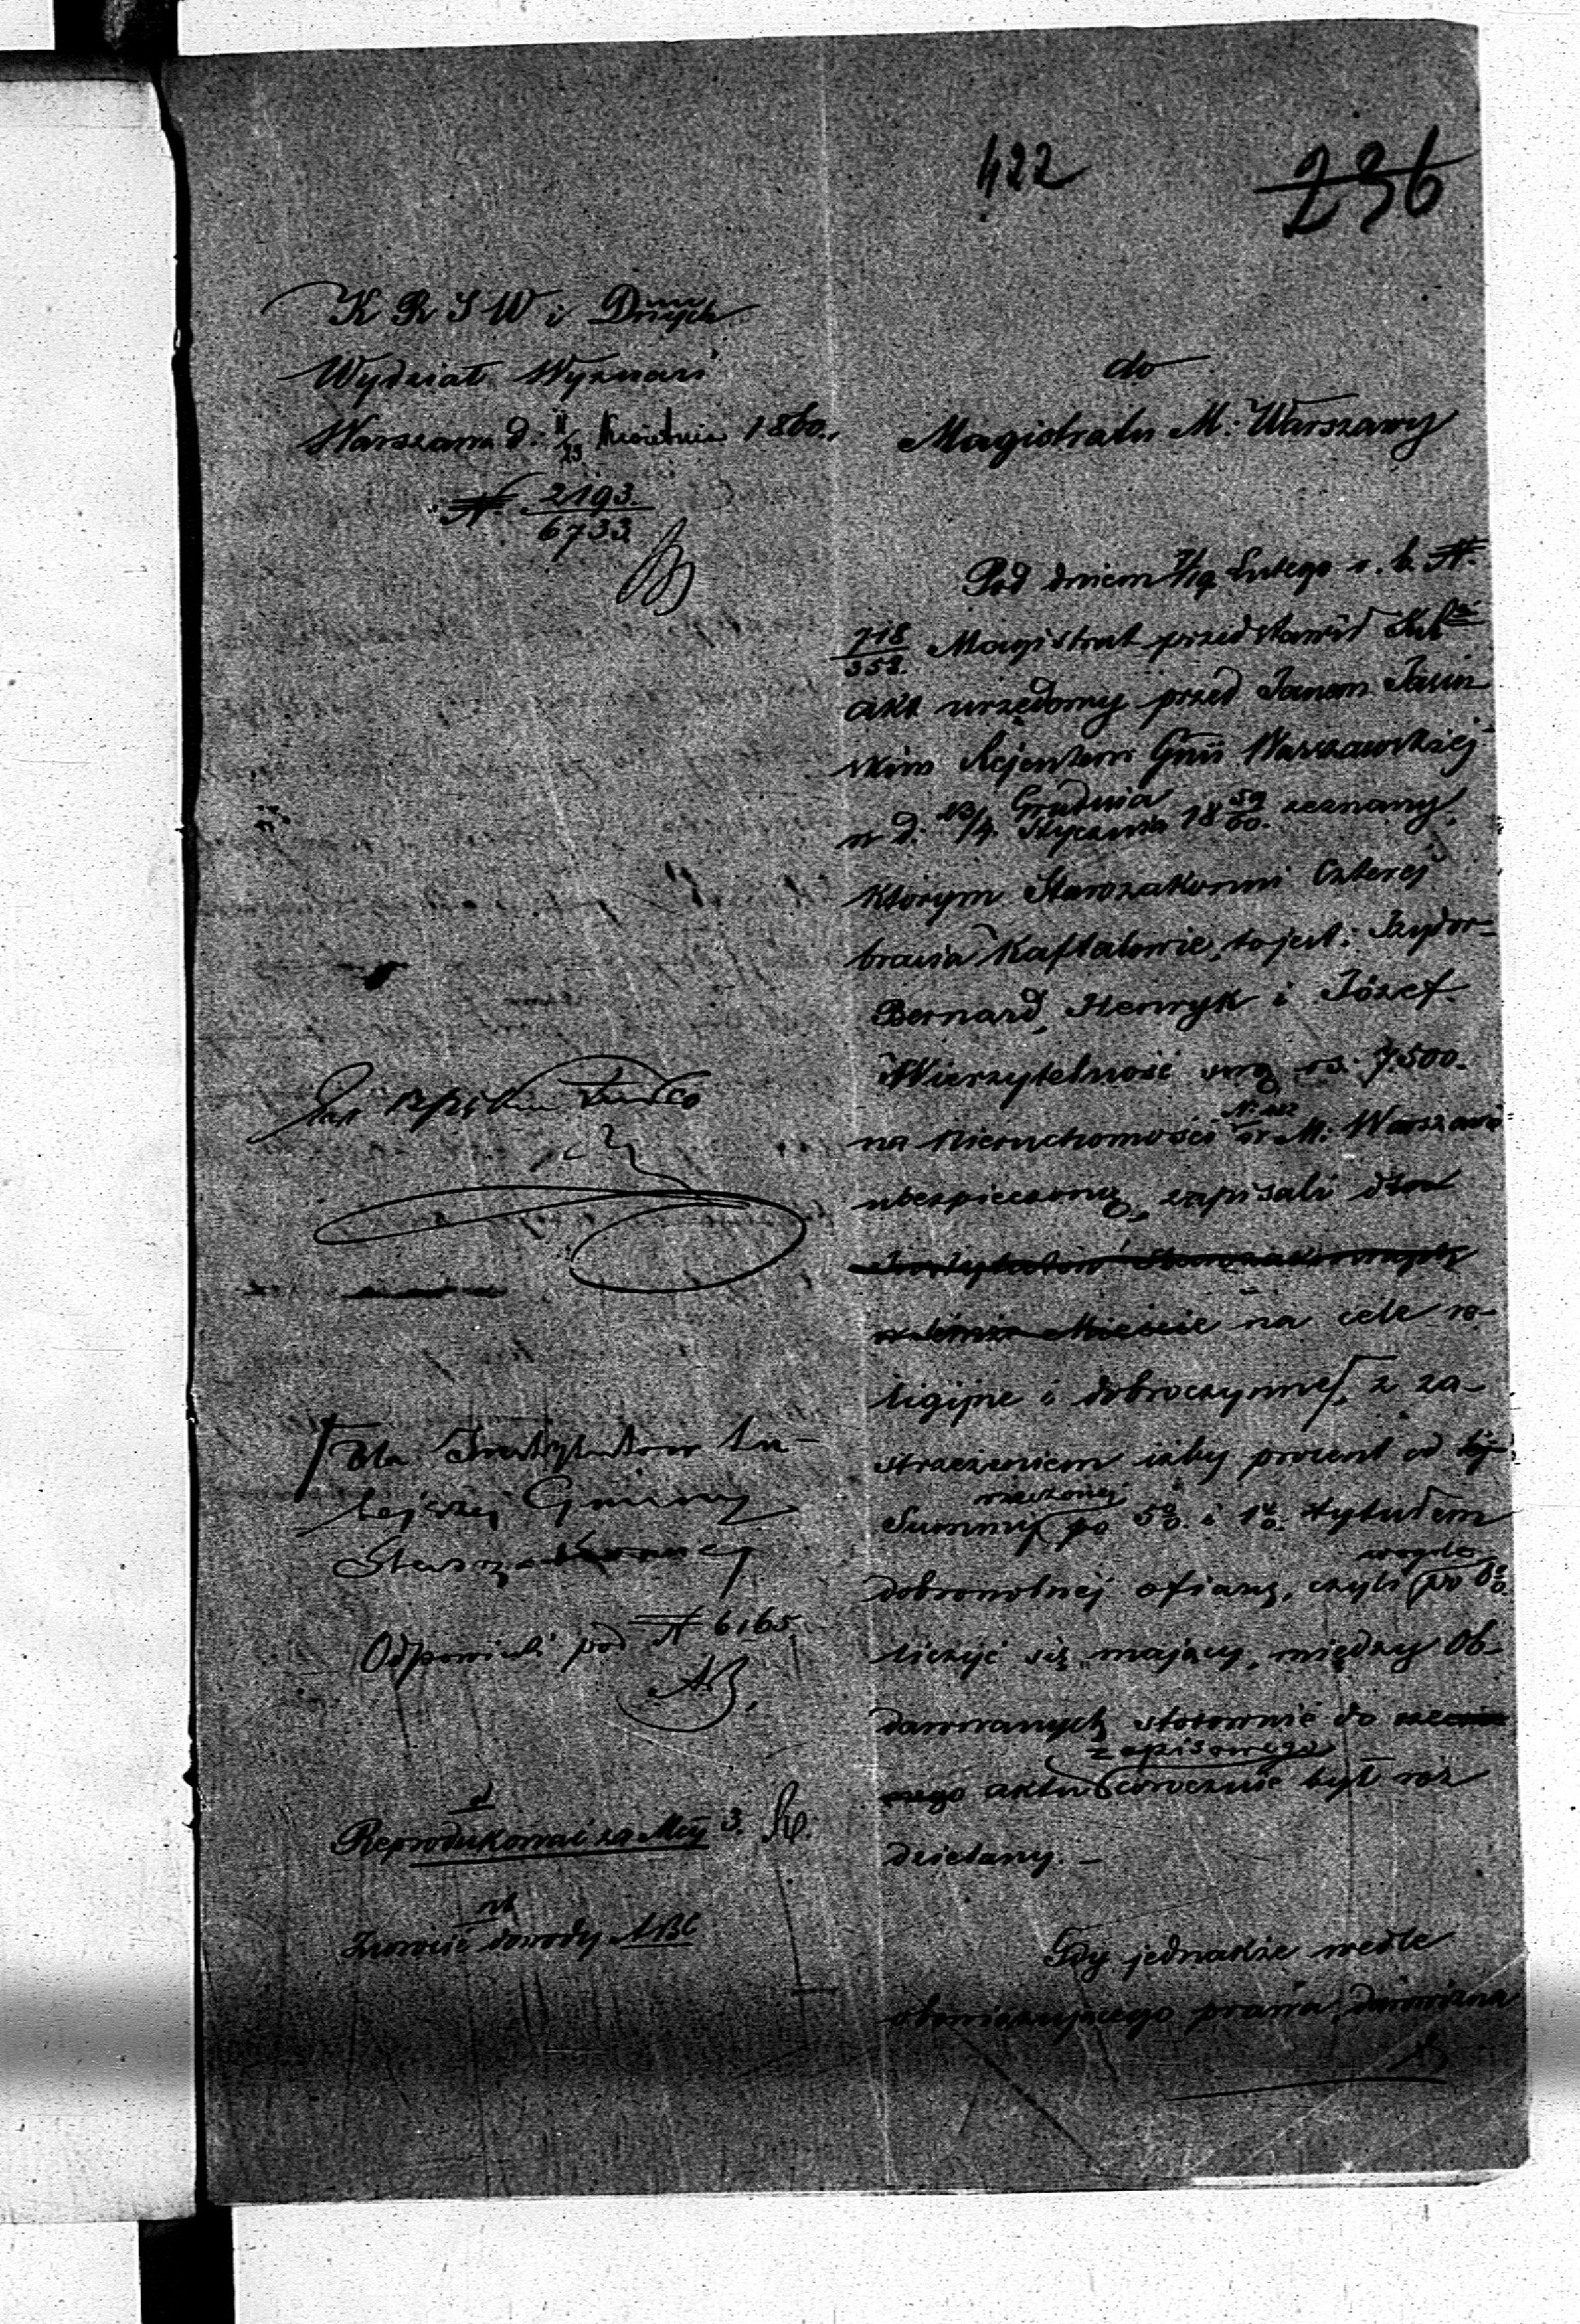 422
236
K R S W i Dnych
Wydział Wyznań
Warszawa d: 11/23 Kwietnia 1860.
N. 2193./6733.
do
Magistratu M: Warszawy
Pod dniem 7/19 Lutego r. b. N.
718/358. Magistrat przedstawił
akt urzędowy przed Janem Jasiń
skim Rejentem Gnii Warszawskiej
w d: 23/4. Grudnia/Stycznia 18 59/60. zeznany,
którym Starozakonni Czterej
bracia Kaftalowie, to jest: Izydor
Bernard, Henryk i Józef
Wierzytelność swą rs. 7.500.
na Nieruchomości w M: Warszawie
ubezpieczoną, zapisali dla
Instytutów Starozakonnych
w temże Mieście na cele re-
ligijne i dobroczynne, z za-
strzeżeniem iżby procent od tej
rzeczonej
Summy po 5%. i 1%. tytułem
dobrowolnej ofiary, czyli po 6%
liczyć się mający, między Ob-
darowanych stosownie do
zapisowego
aktu corocznie był roz
dzielany. –
Gdy jednakże wedle
obowiązującego prawa, darowizna
dla Instytutów tu-
tejszej Gminy
Starozakonnej
Odpowiedź pod N 6165
AB.
Reprodukować za Mcy 3.
nb
Zwrócić dowody ABC